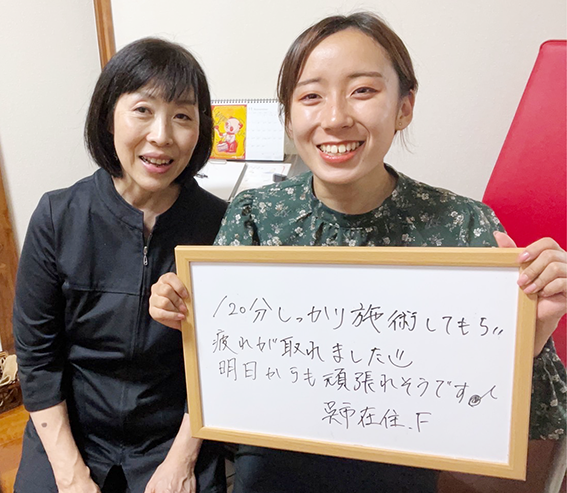 120分しっかり施術してもらい
疲れが取れました
明日からも頑張れそうです♪
呉市在住.F